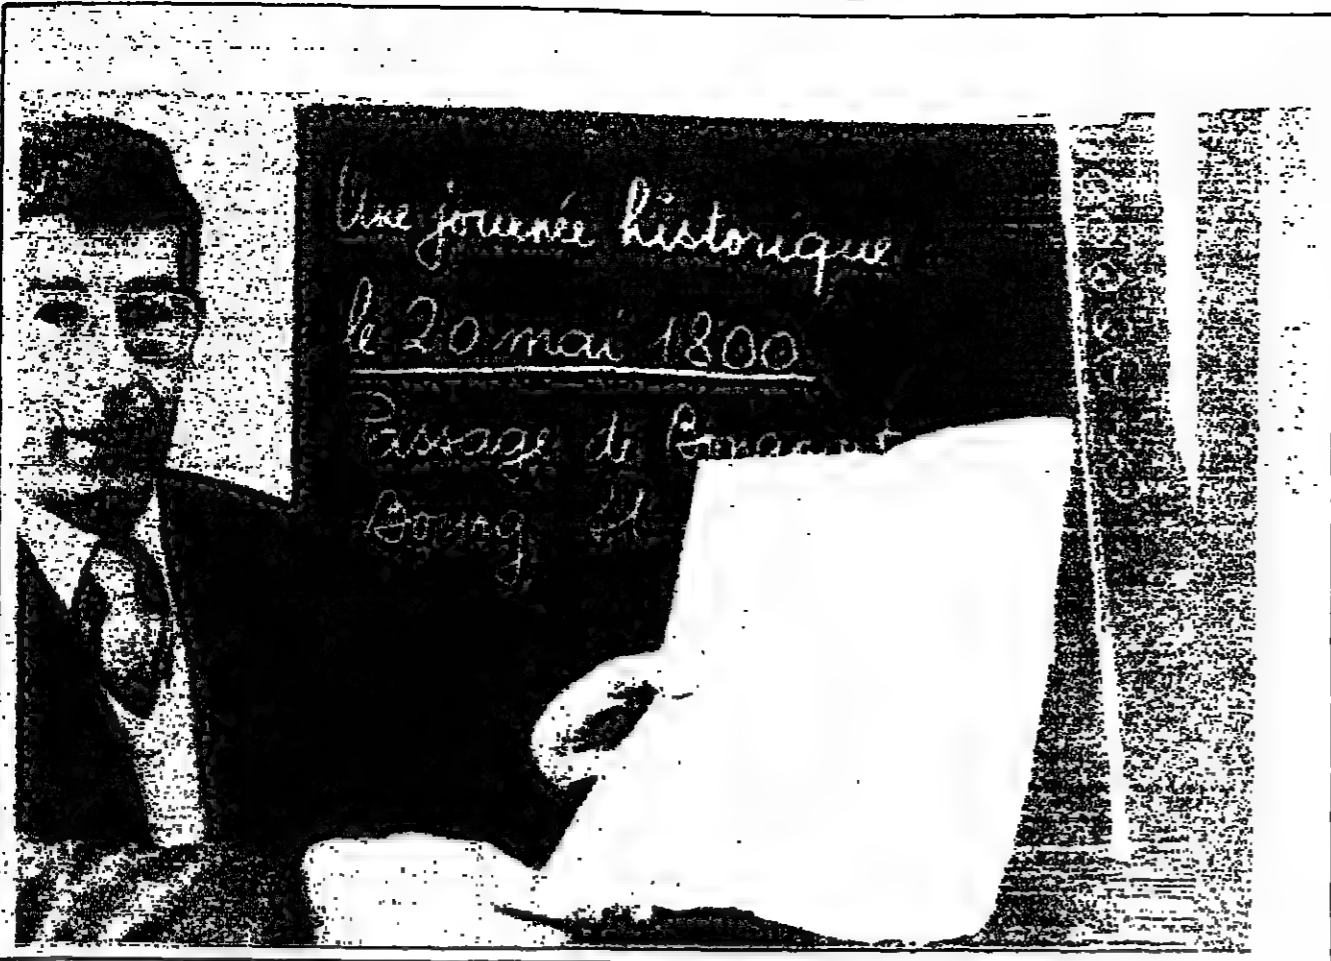 Une journée historique
le 20 mai 1800
Passage de
Bourg